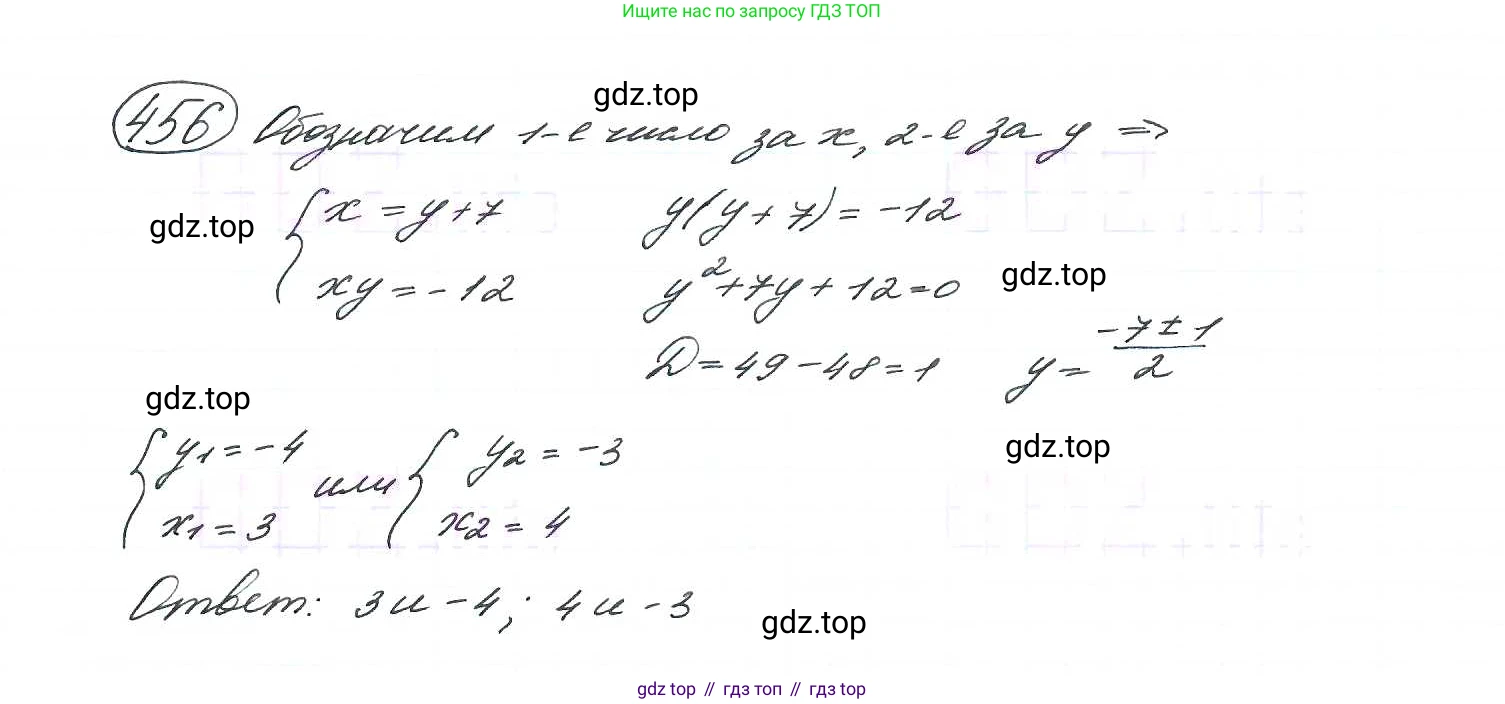 Ищите нас по запросу ГДЗ ТОП
gdz.top
456 Обозначим 1-е число за x, 2-е за y =>
gdz.top
{ x = y + 7
xy = -12
y(y + 7) = -12
y² + 7y + 12 = 0
gdz.top
D = 49 - 48 = 1 y = (-7 ± 1)/2
gdz.top
{ y₁ = -4
x₁ = 3
или { y₂ = -3
x₂ = 4
gdz.top
Ответ: 3 и -4; 4 и -3
gdz.top
gdz top // гдз топ // гдз top